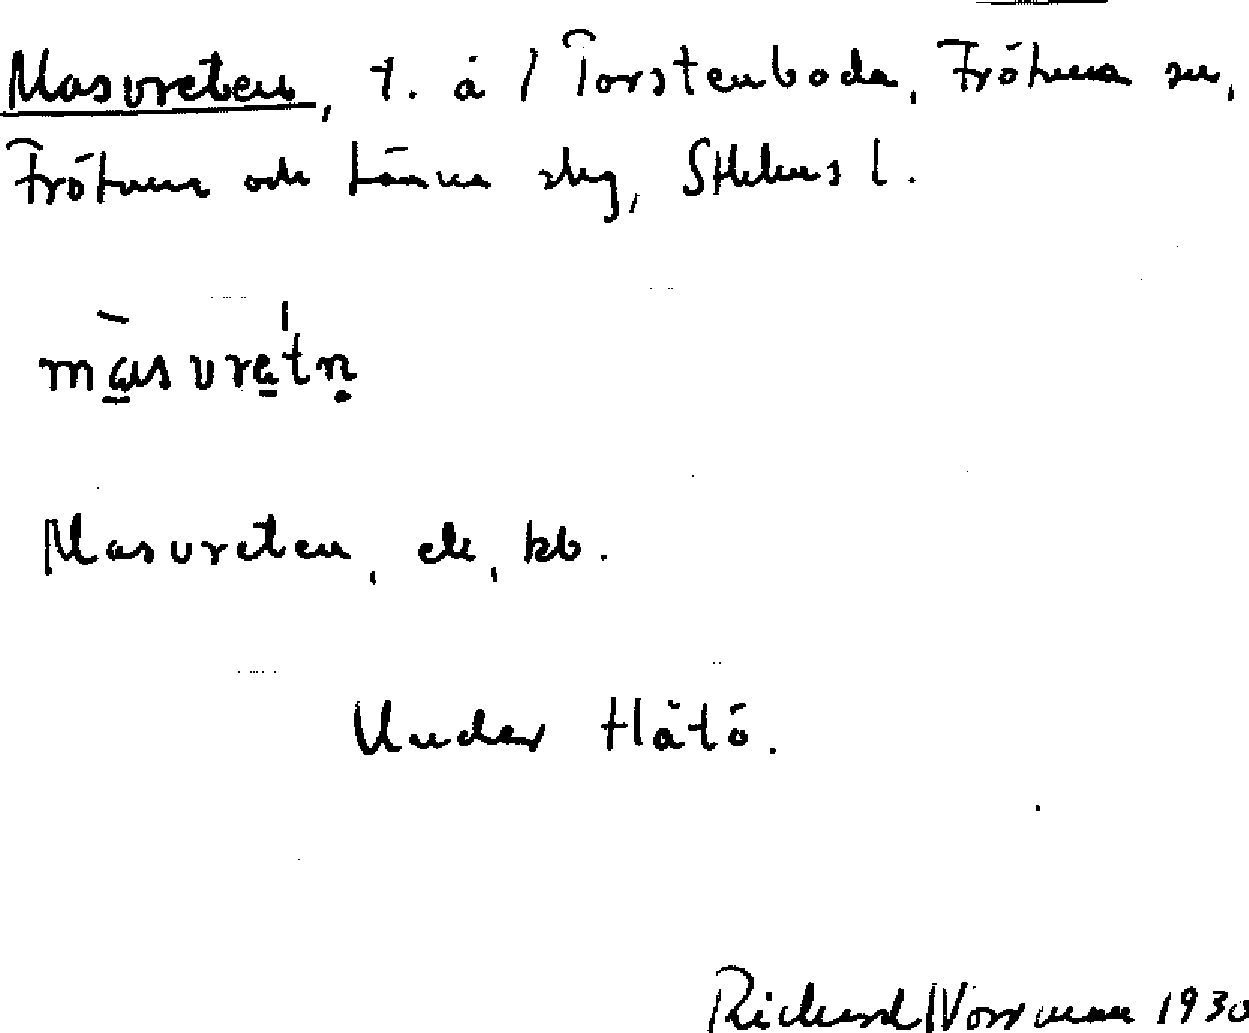 Masvreten, t. å 1 Torstenboda, Frötuna sn,
Frötuna och Länna skg, Sthlms l.
màsvretṇ
Masvreten, ek, kb.
Under Håtö.
Richard Norrman 1930